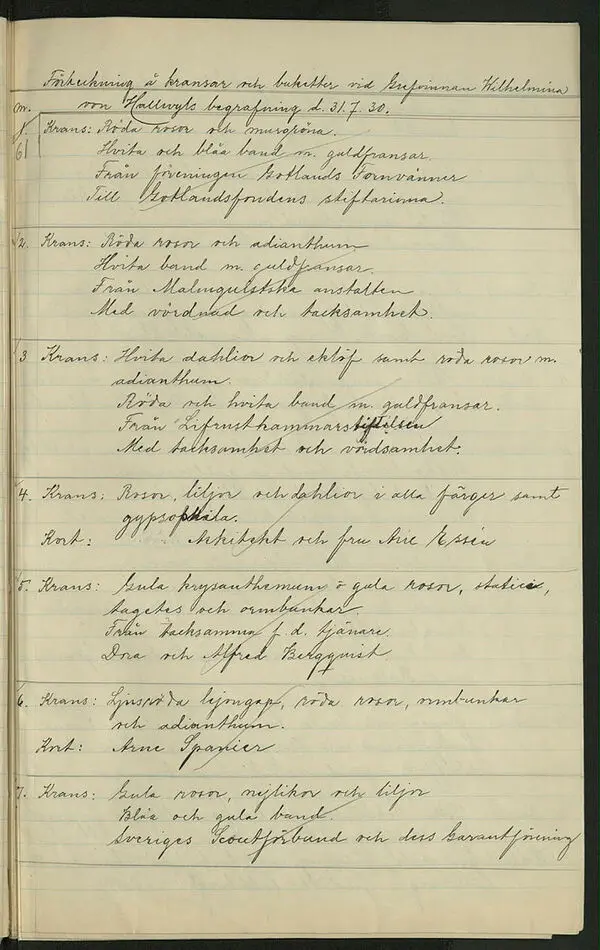 Förteckning å kransar och buketter vid Grefvinnan Wilhelmina
von Hallwyls begrafning d. 31.7.30.
nr.
1.
61
Krans: Röda rosor och murgröna.
Hvita och blåa band m. guldfransar.
Från föreningen Gotlands Fornvänner
Till Gotlandsfondens stiftarinna.
2. Krans: Röda rosor och adianthum
Hvita band m. guldfransar.
Från Malmquistska anstalten
Med vördnad och tacksamhet.
3 Krans: Hvita dahlior och eklöf samt röda rosor m.
adianthum.
Röda och hvita band m. guldfransar.
Från Lifrustkammarstiftelsen
Med tacksamhet och vördsamhet.
4. Krans: Rosor, liljor och dahlior i alla färger samt
gypsophila.
Kort: Arkitekt och fru Arre Essén
5. Krans: Gula krysanthemum o gula rosor, statice,
tagetes och ormbunkar.
Från tacksamma f. d. tjänare.
Dora och Alfred Bergquist
6. Krans: Ljusröda lejongap, röda rosor, ormbunkar
och adianthum.
Kort: Arne Spanier
7. Krans: Gula rosor, nejlikor och liljor
Blåa och gula band.
Sveriges Scoutförbund och dess Garantförening